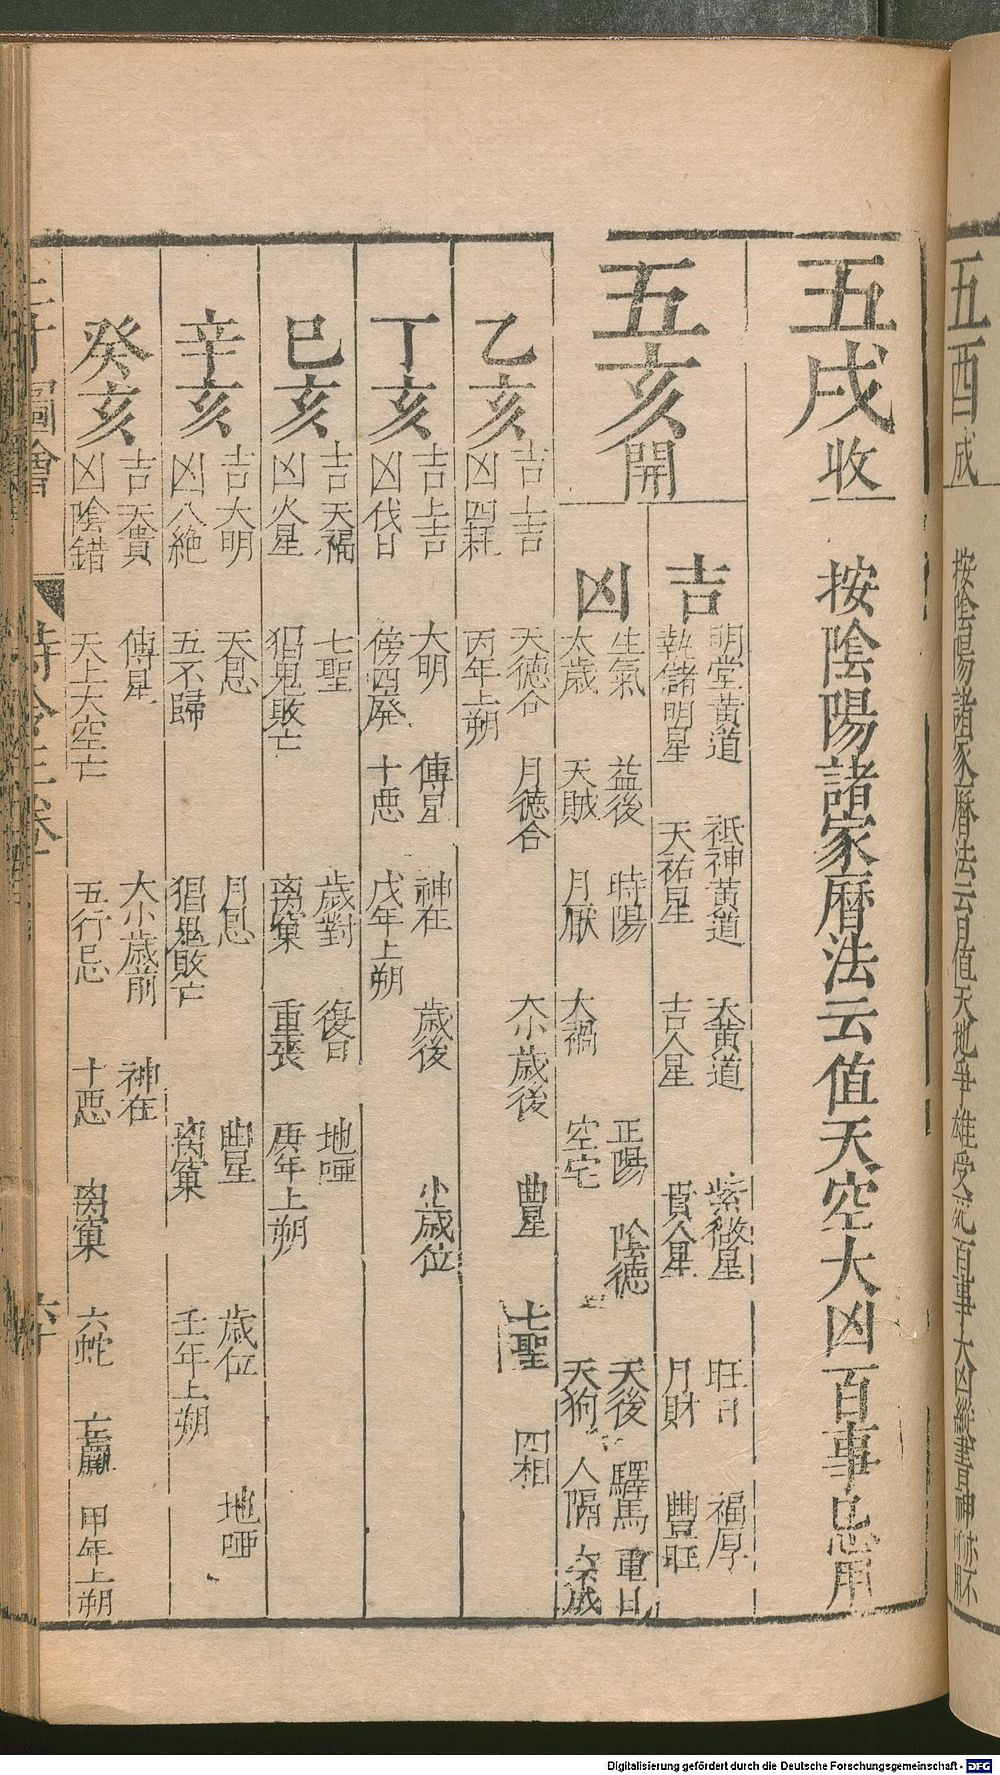 五酉成
按陰陽諸家曆法云百值天地爭雄受死百事大凶縱書神亦不
五戌收
按陰陽諸家曆法云值天空大凶百事忌用
五亥開
吉
明堂黃道 祇神黃道 大黃道 紫微星 旺日 福厚
執儲明星 天祐星 吉人星 貫人星 月財 豐旺
生氣 益後 時陽 正陽 陰德 天後 驛馬 重日
凶
太歲 天賊 月厭 大禍 空宅 天狗 人隔
乙亥
吉上吉 天德合 月德合 大小歲後 曲星 七聖 四相
凶四耗 丙年上朔
丁亥
吉上吉 大明 傳星 神在 歲後 小歲位
凶伐日 傍四廢 十惡 戊年上朔
巳亥
吉天福 七聖 歲對 復日 地啞
凶火星 猖鬼敗亡 离窠 重喪 庚年上朔
辛亥
吉大明 天恩 月恩 曲星 歲位 地啞
凶八絶 五不歸 猖鬼敗亡 离窠 壬年上朔
癸亥
吉天貴 傳星 大小歲前 神在
凶陰錯 天上大空亡 五行忌 十惡 离窠 六蛇 亡嬴 甲年上朔
圖會
Digitalisierung gefördert durch die Deutsche Forschungsgemeinschaft - DFG